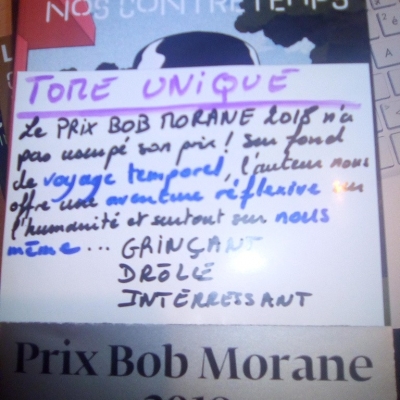 NOS CONTRETEMPS
TOME UNIQUE
Le PRIX BOB MORANE 2018 n'a
pas usurpé son prix ! Sur fond
de voyage temporel, l'auteur nous
offre une aventure réflexive sur
l'humanité et surtout sur nous
même... GRINÇANT
DRÔLE
INTERRESSANT
Prix Bob Morane